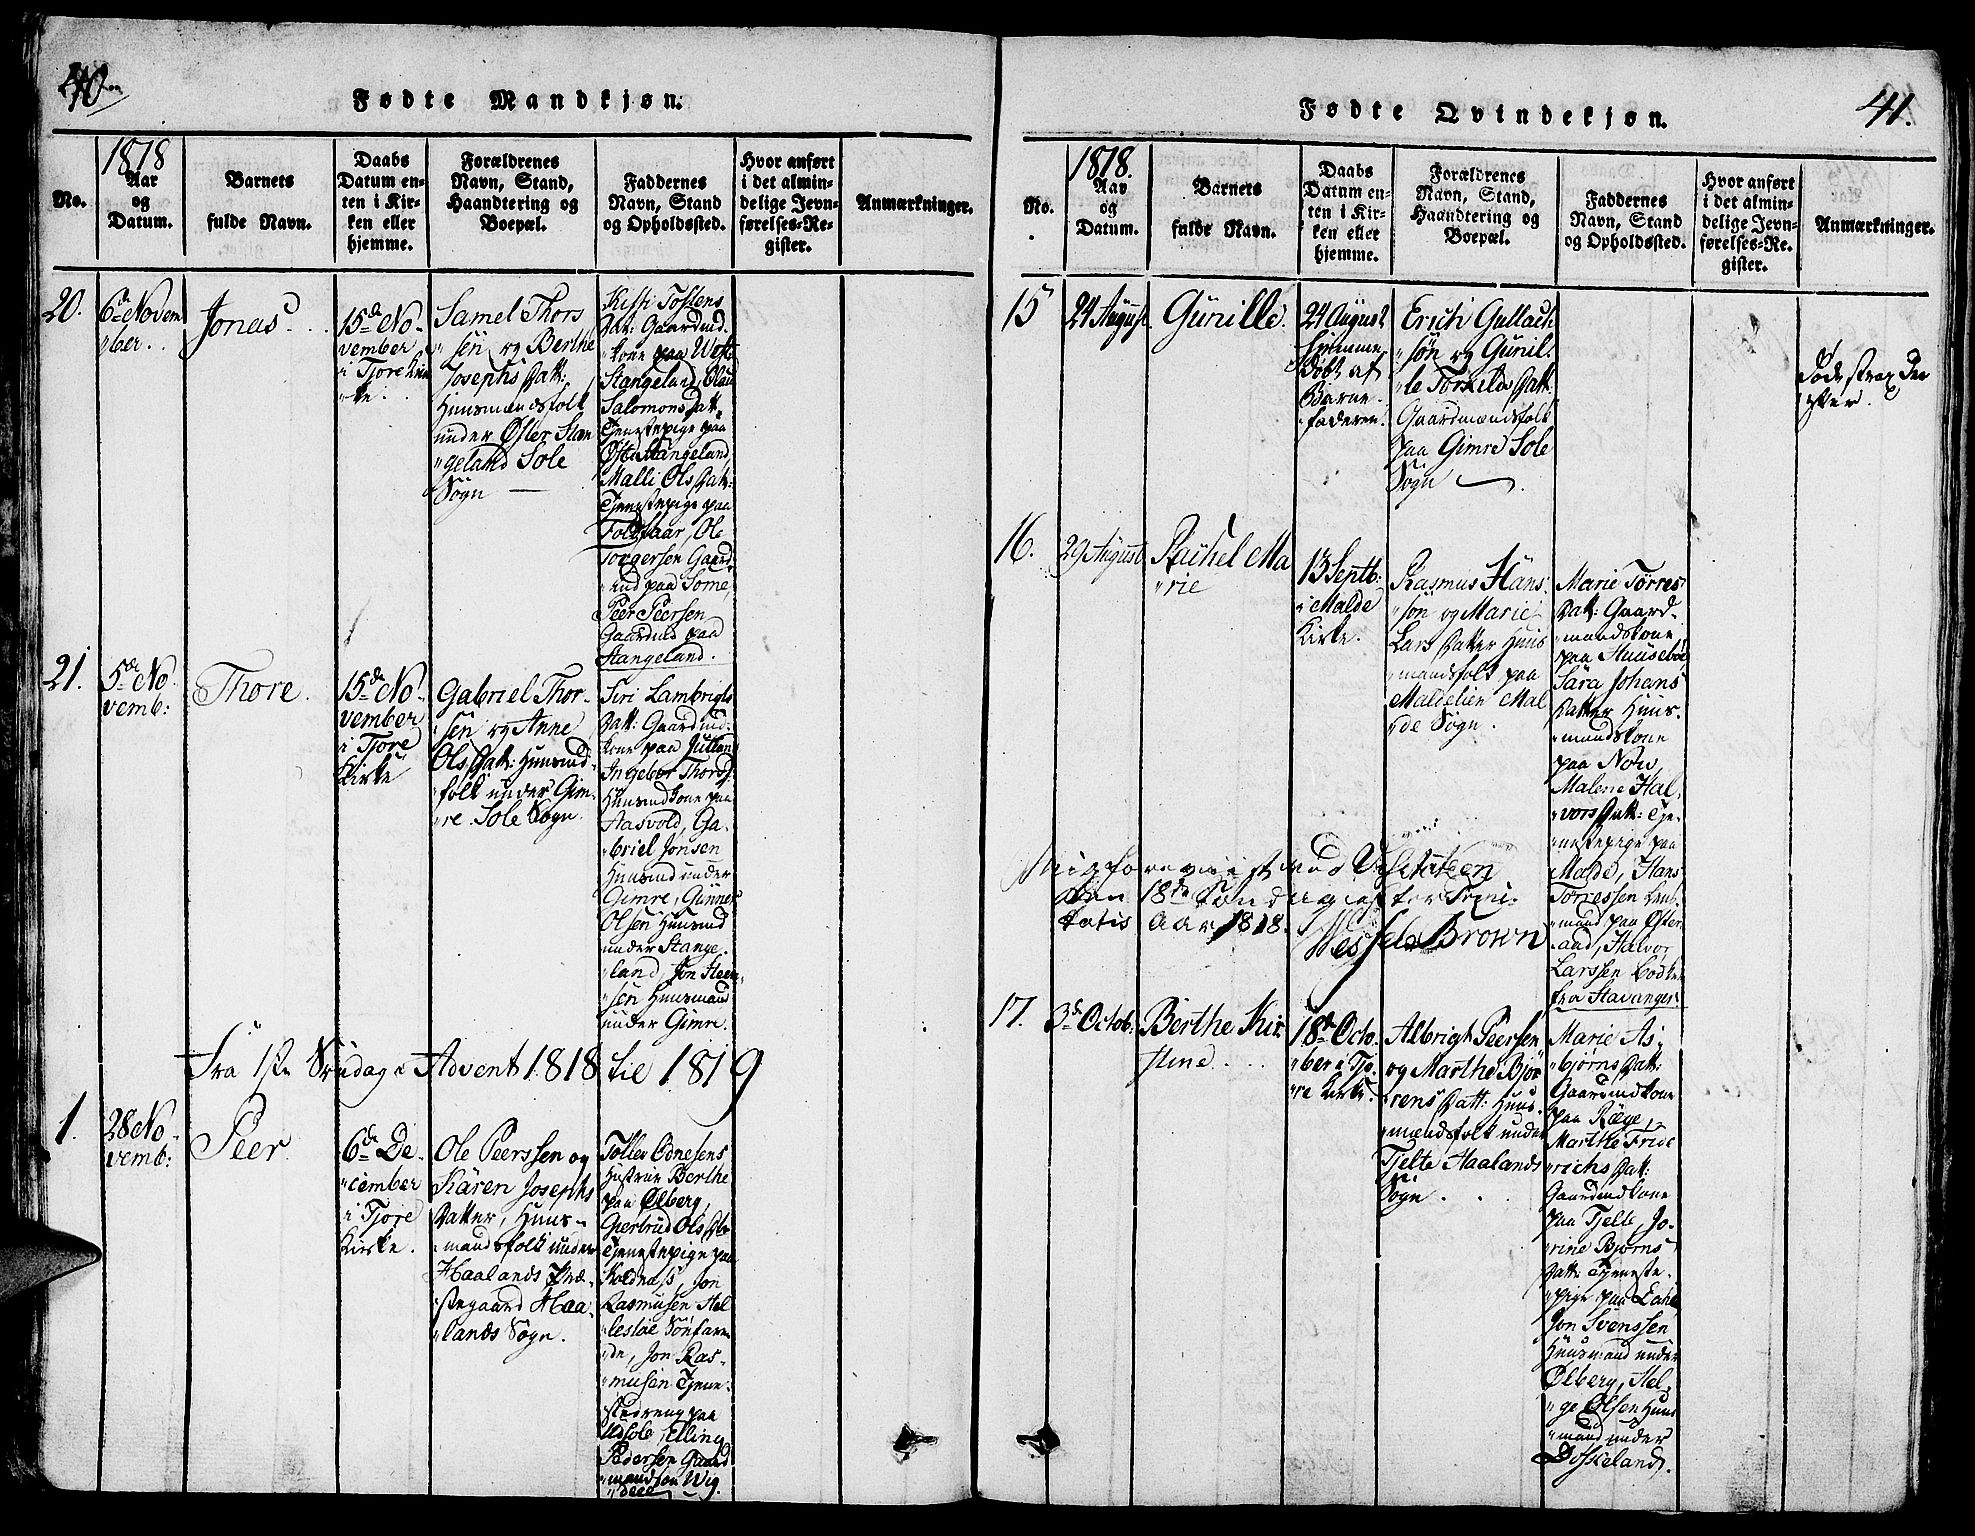 40
Fødte Mandkjøn.
No.
1818
Aar
og
Datum.
Barnets
fulde Navn.
Daabs
Datum en-
ten i Kir-
ken eller
hjemme.
Forældrenes
Navn, Stand,
Haandtering og
Boepæl.
Faddernes
Navn, Stand
og Opholdssted.
Hvor anført
i det almin-
delige Jevn-
førelses-Re-
gister.
Anmærkninger.
20.
6te Novem
"ber.
Jonas.
15de No-
vember
i Tjore Kir
"ke.
Samel Thors
"sen og Berthe
Josephs Datt:
Huusmandsfolk
under Øster Stan
"geland Sole
Sogn
Tostens
Datt: Gaardmd.
"kone paa Westr
Stangeland,
Salomons Datt.
Tjenestepige paa
Østr Stangeland
Malli Ols Datt:
Tjenestepige paa
Ole
Torgersen Gaard
"md paa Some
Peer Peersen
Gaardmd paa
Stangeland.
21.
5de No-
vemb:
Thore.
15de No-
vember
i Tjore
Kirke
Gabriel Thor-
"sen og Anne
Ols Datt: Huusmd-
"folk under Gim-
"re Sole Sogn.
Siri Lambrigts
Datt: Gaardmd.
kone paa
Ingebor Thors
Huusmdkone paa
Aasvold, Ga-
"briel Jonsen
Huusmd under
Gimre, Gunner
Olsen Huusmd
under Stange-
"land, Jon Steen-
"sen Huusmand
under Gimre.
Fra 1ste Søndag i Advent 1818 til 1819
1.
28 No-
vemb:
Peer.
6te De-
"cember
i Tjore
Kirke.
Ole Peerssen og
Karen Josephs
Datter, Huus-
"mandsfolk under
Haalands Præ-
"stegaard Haa-
"lands Sogn.
Tollev Ednesens
Hustrue Berthe
paa Ølberg,
Giertrud Ols Dtr
Tjenestepige paa
Jon
Rasmusen Hel
"lestøe
"de, Jon Ras-
"musen Tjene-
stedreng paa
Udsole, Elling
Pedersen Gaard
"mand paa Wig.
41.
Fødte Qvindekjøn.
No.
1818.
Aar
og
Datum.
Barnets
fulde Navn.
Daabs
Datum en-
ten i Kir-
ken eller
hjemme.
Forældrenes
Navn, Stand,
Haandtering og
Boepæl.
Faddernes
Navn, Stand
og Opholdssted.
Hvor anført
i det almin-
delige Jevn-
førelses-Re-
gister.
Anmærkninger.
15
24 August.
Gunille.
24 August
hjemme
døbt af
Barne-
faderen.
Erich Gullach
"søn og Gunil-
"le Torkelds Datt.
Gaardmændsfolk
paa Gimre Sole
Sogn.
Døde strax der
efter.
16.
29 August
Rachel Ma
"rie
13 Septb:
i Malde
Kirke.
Rasmus Hans
"søn og Marie
Lars Datter Huus
"mandsfolk paa
Maldelien Mal
"de Sogn.
Marie Tørres
Datt: Gaard-
"mandskone
paa Huusebøe
Sara Johans
Datter Huus-
"mandskone
paa
Malene Hal-
"vors Datt: Tje-
"nestepige paa
Malde, Hans
Torressen
"mand paa Øster
Halvor
Larssen
fra Stavanger
Mig foreviist ved Visitatsen
den 18de Søndag efter Trini-
tatis Aar 1818. Wessel Brown
17.
3de Octob:
Berthe Kir
stine.
18de Octo.
"ber i Tjo-
"re Kirke.
Albrigt Peersen
og Marthe Bjør
"rens Datt: Huus-
"mændsfolk under
Tjelte Haalands
Sogn.
Marie As-
"bjørns Datt:
Gaardmdkone
paa Ræge,
Marthe Fride
"richs Datt:
Gaardmdkone
paa Tjelte, Jo-
"rine Bjørns
Datt: Tjeneste-
"pige paa
Jon Svenssen
Huusmand under
Ølberg, Hel-
"ge Olsen Huus
"mand under
Dysseland.